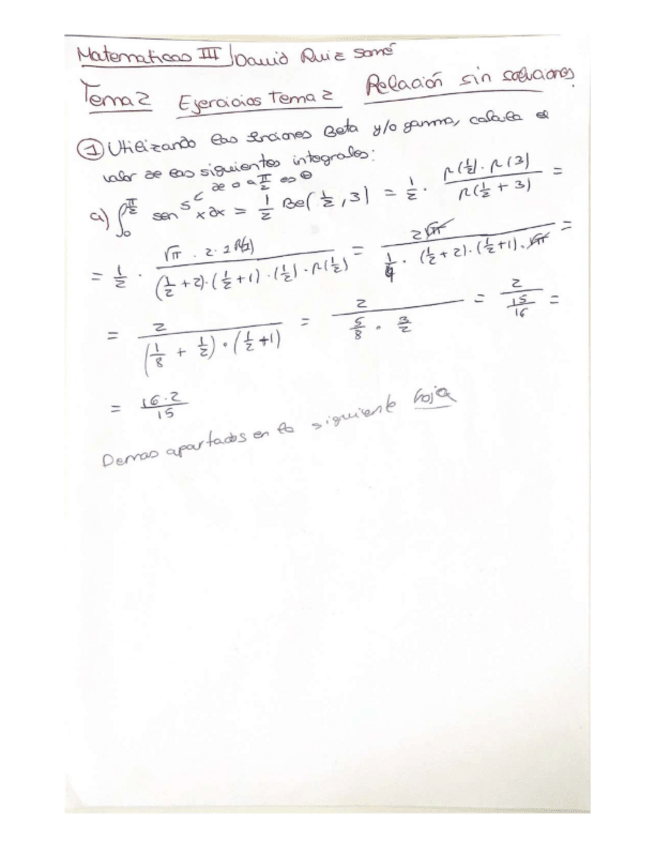 Matematicas III / David Ruiz
Tema 2 Ejercicios Tema 2 Relación sin soluciones.
① Utilizando las funciones Beta y/o gamma, calcula el
valor de las siguientes integrales:
de 0 a π/2 es 0
a) ∫₀^{π/2} sen⁵ x dx = 1/2 Be(1/2, 3) = 1/2 · Γ(1/2) · Γ(3) / Γ(1/2 + 3) =
= 1/2 · √π · 2 · 1 Γ(1) / (1/2 + 2) · (1/2 + 1) · (1/2) · Γ(1/2) = 2√π / · (1/2 + 2) · (1/2 + 1) · √π =
= 2 / (1/8 + 1/2) · (1/2 + 1) = 2 / 5/8 · 3/2 = 2 / 15/16 =
= 16·2 / 15
Demas apartados en la siguiente hoja